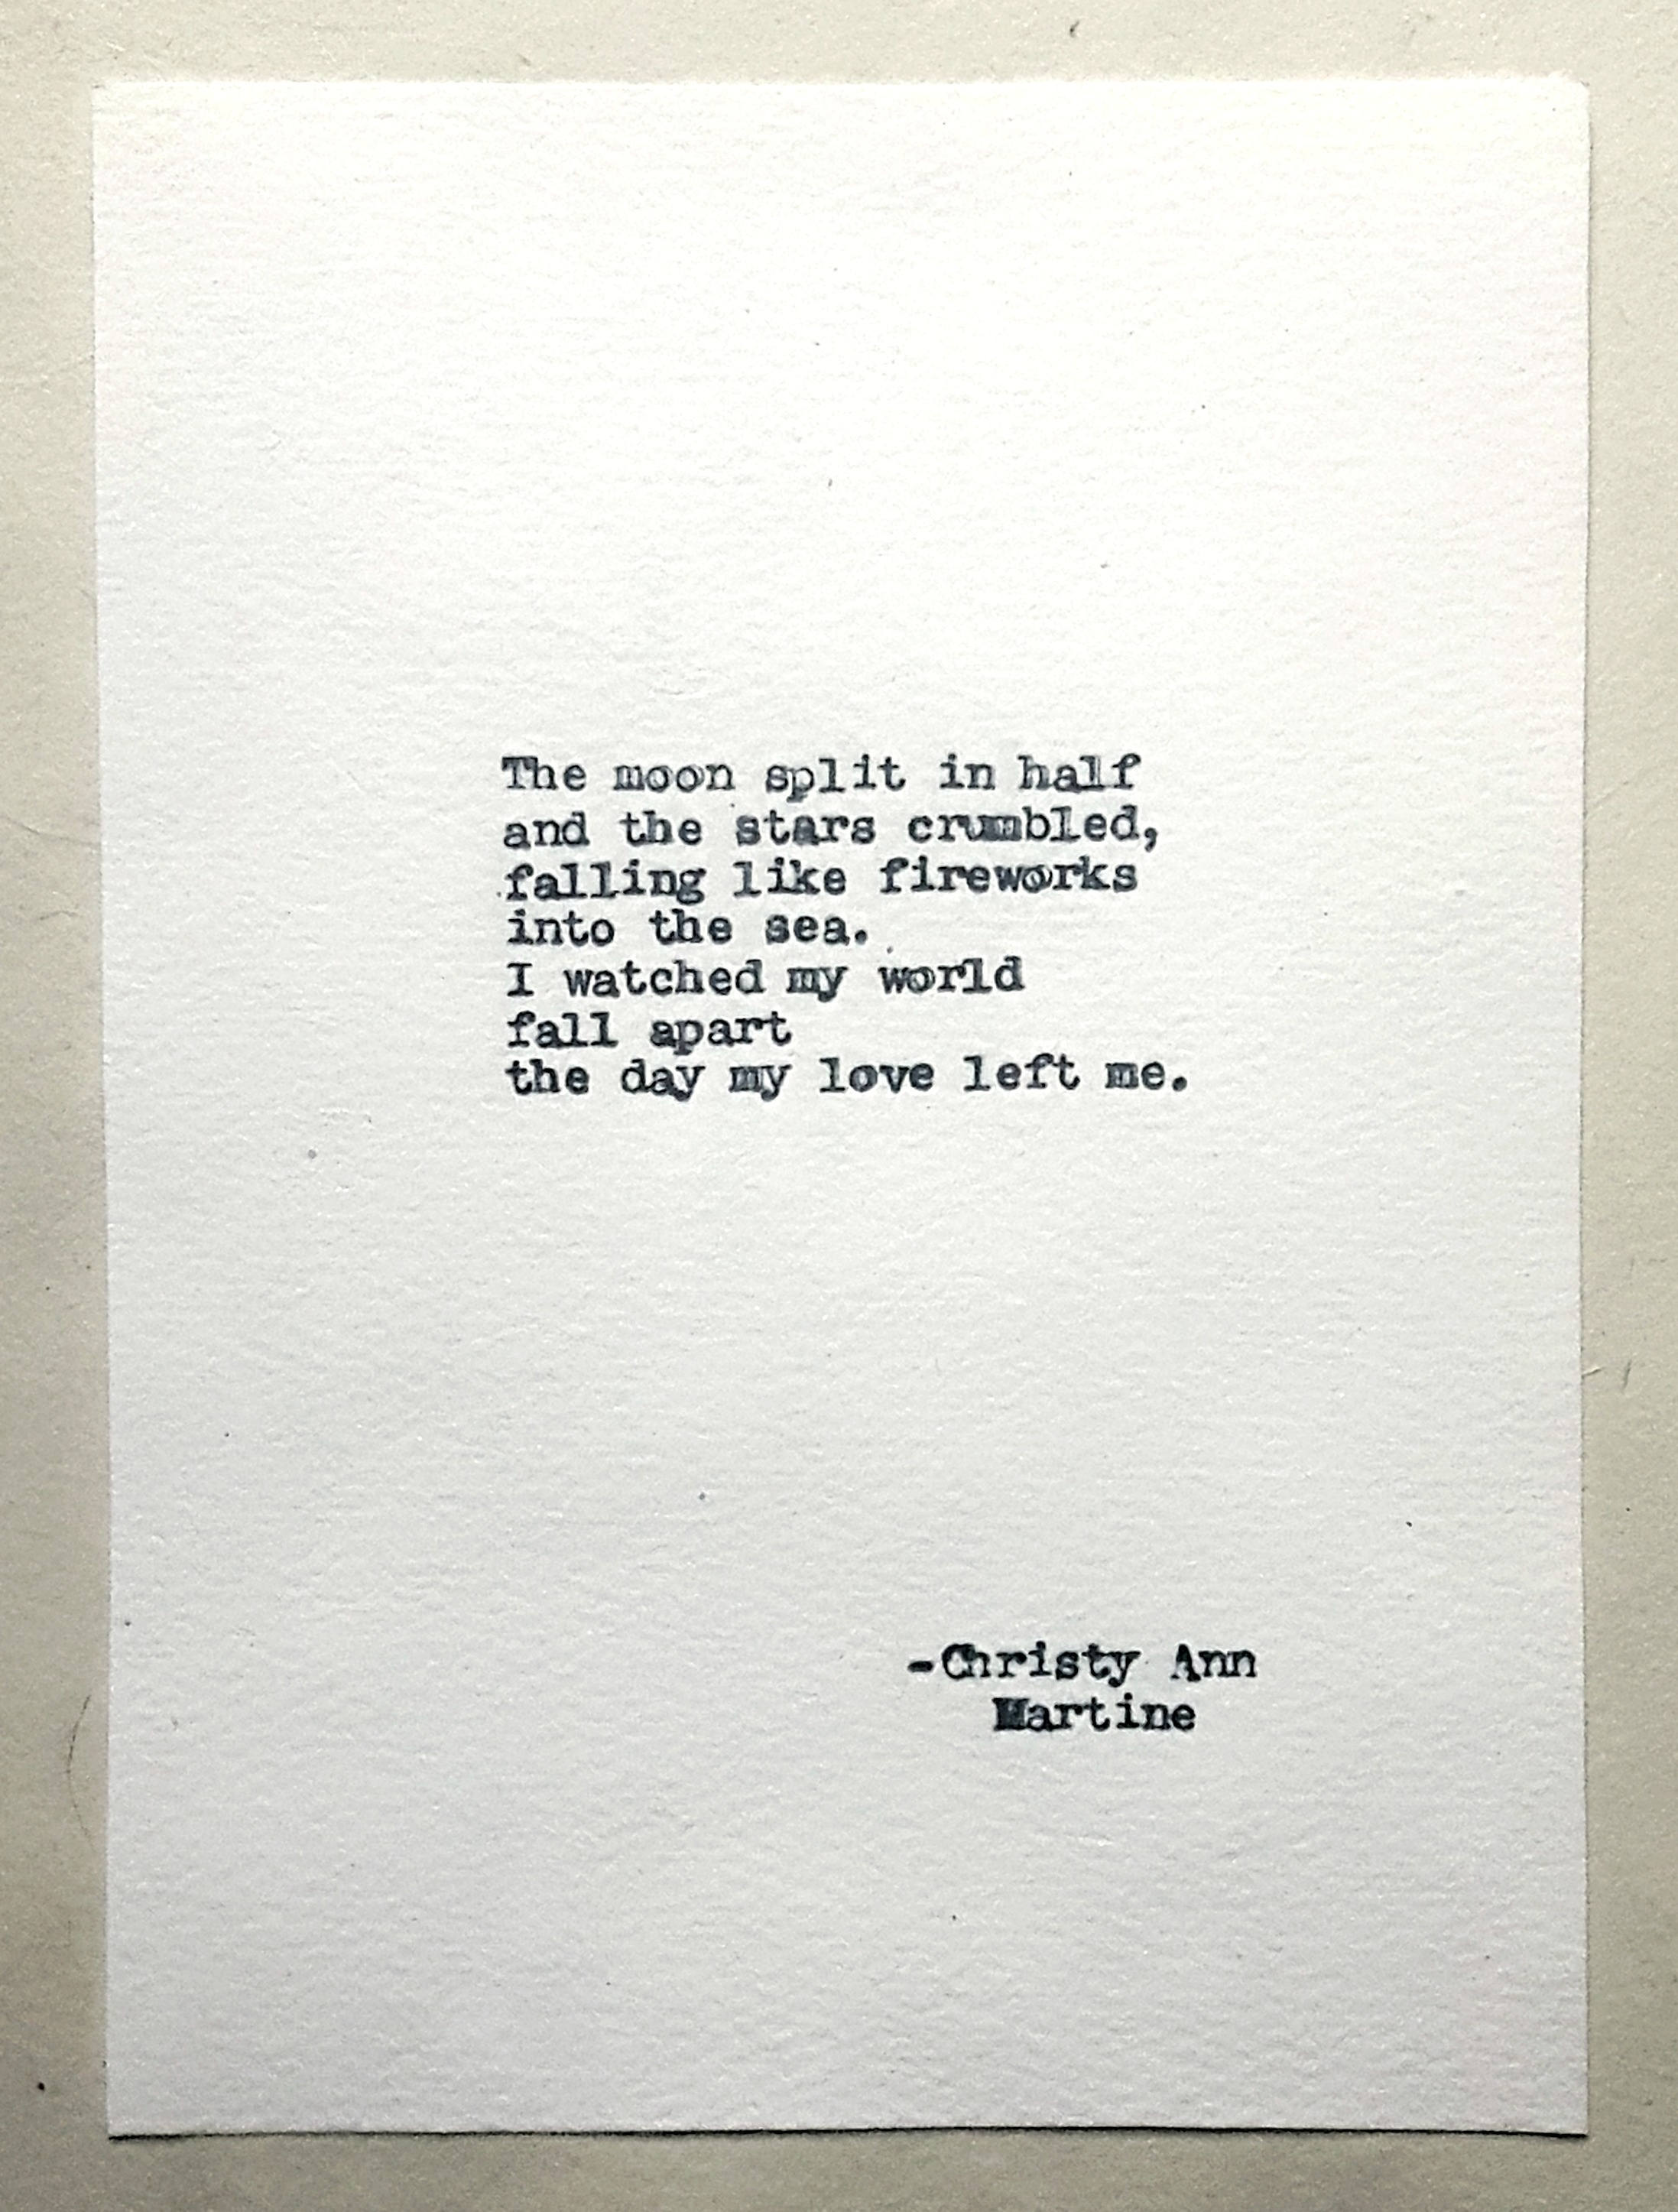 The moon split in half
and the stars crumbled,
falling like fireworks
into the sea.
I watched my world
fall apart
the day my love left me.
-Christy Ann
Martine